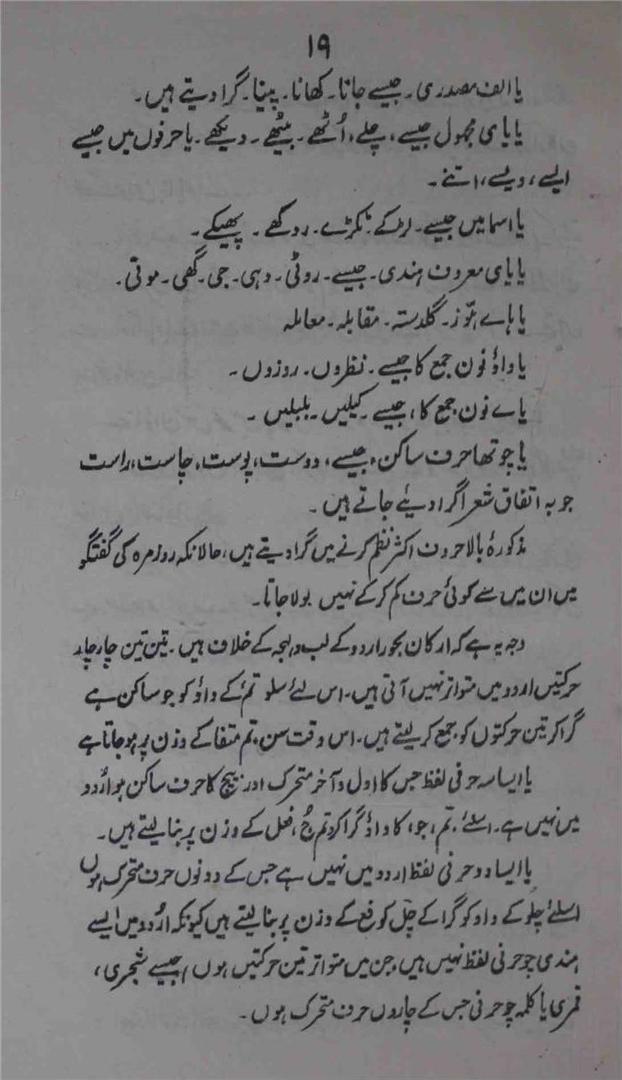 ۱۹
یا الف مصدری۔ جیسے جاتا۔ کھانا۔ پینا۔ گرا دیتے ہیں۔
یا یای مجہول جیسے، چلے، اُٹھے۔ بیٹھے۔ دیکھے۔ یا حرفوں میں جیسے
ایسے، ویسے، اتنے۔
یا اسما میں جیسے۔ لڑکے۔ ٹکڑے۔ روگھے۔ پھیکے۔
یا یای معروف ہندی۔ جیسے۔ روٹی۔ دہی۔ جی۔ گھی۔ موتی۔
یا ہاے ہوّز۔ گلدستہ۔ مقابلہ۔ معاملہ
یا واؤ نون جمع کا جیسے۔ نظروں۔ روزوں۔
یا ے نون جمع کا، جیسے۔ کیلیں۔ بلبلیں۔
یا چوتھا حرف ساکن، جیسے، دوست، پوست، چاست، راست
جو بہ اتفاق شعرا گرا دیئے جاتے ہیں۔
مذکورۂ بالا حروف اکثر نظم کرنے میں گرا دیتے ہیں، حالانکہ روزمرہ کی گفتگو
میں ان میں سے کوئی حرف کم کر کے نہیں بولا جاتا۔
وجہ یہ ہے کہ ارکان بحور اردو کے لب و لہجہ کے خلاف ہیں۔ تین تین چار چار
حرکتیں اردو میں متواتر نہیں آتی ہیں۔ اس لئے سلو تم کے واؤ کو جو ساکن ہے
گرا کر تین حرکتوں کو جمع کر لیتے ہیں۔ اس وقت سن، تم متفا کے وزن پر ہو جاتا ہے
یا ایسا سہ حرفی لفظ جس کا اول و آخر متحرک اور بیچ کا حرف ساکن ہو اُردو
میں نہیں ہے۔ اسلئے، تم، جو، کا واؤ گرا کر تم جُ، فعل کے وزن پر بنا لیتے ہیں۔
یا ایسا دو حرفی لفظ اردو میں نہیں ہے جس کے دونوں حرف متحرک ہوں
اسلئے چلو کے واو کو گرا کے چل کو فع کے وزن پر بنا لیتے ہیں کیونکہ اُردو میں ایسے
ہندی چو حرفی لفظ نہیں ہیں، جن میں متواتر تین حرکتیں ہوں، جیسے شجری،
قمری یا کلمہ چو حرفی جس کے چاروں حرف متحرک ہوں۔